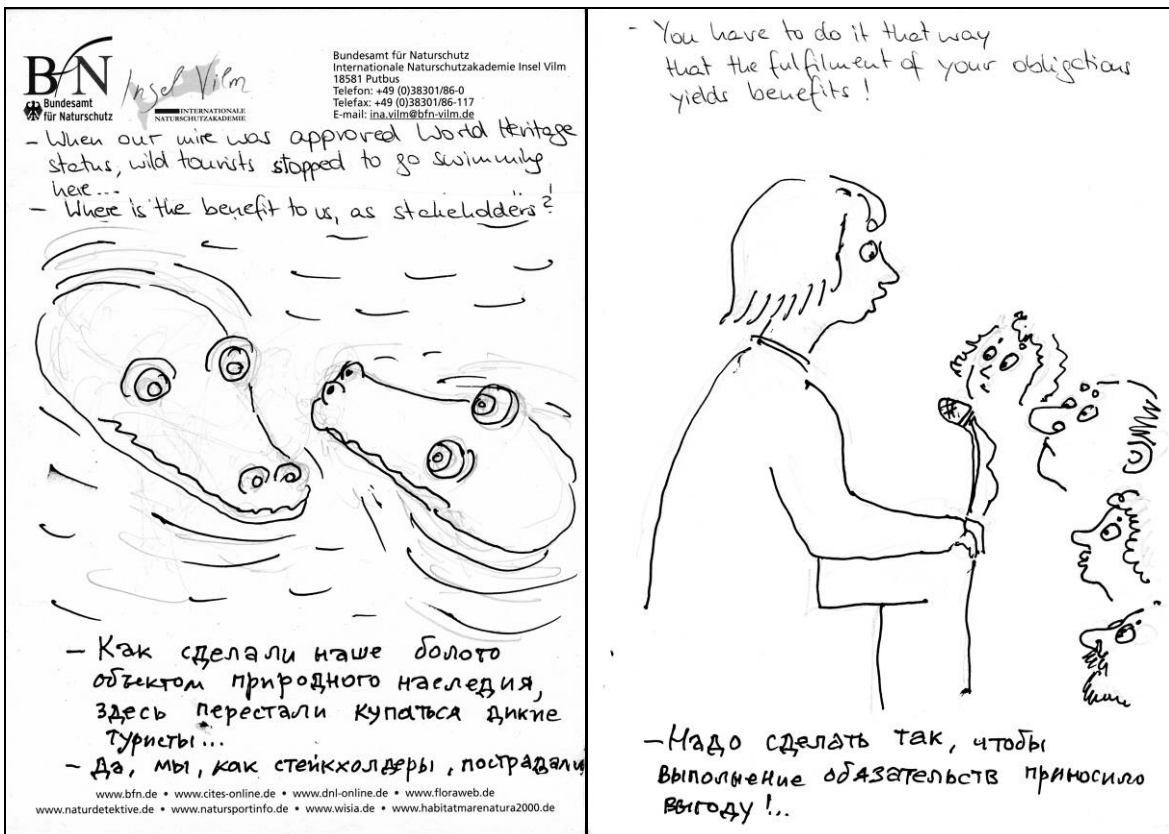 BfN
Bundesamt
für Naturschutz
Insel Vilm
INTERNATIONALE
NATURSCHUTZAKADEMIE
Bundesamt für Naturschutz
Internationale Naturschutzakademie Insel Vilm
18581 Putbus
Telefon: +49 (0)38301/86-0
Telefax: +49 (0)38301/86-117
E-mail: ina.vilm@bfn-vilm.de
- When our mire was approved World Heritage
status, wild tourists stopped to go swimming
here...
- Where is the benefit to us, as stakeholders?!
- Как сделали наше болото
объектом природного наследия,
здесь перестали купаться дикие
туристы...
- Да, мы, как стейкхолдеры, пострадали
www.bfn.de • www.cites-online.de • www.dnl-online.de • www.floraweb.de
www.naturdetektive.de • www.natursportinfo.de • www.wisia.de • www.habitatmarenatura2000.de
- You have to do it that way
that the fulfilment of your obligations
yields benefits!
- Надо сделать так, чтобы
выполнение обязательств приносило
выгоду!...